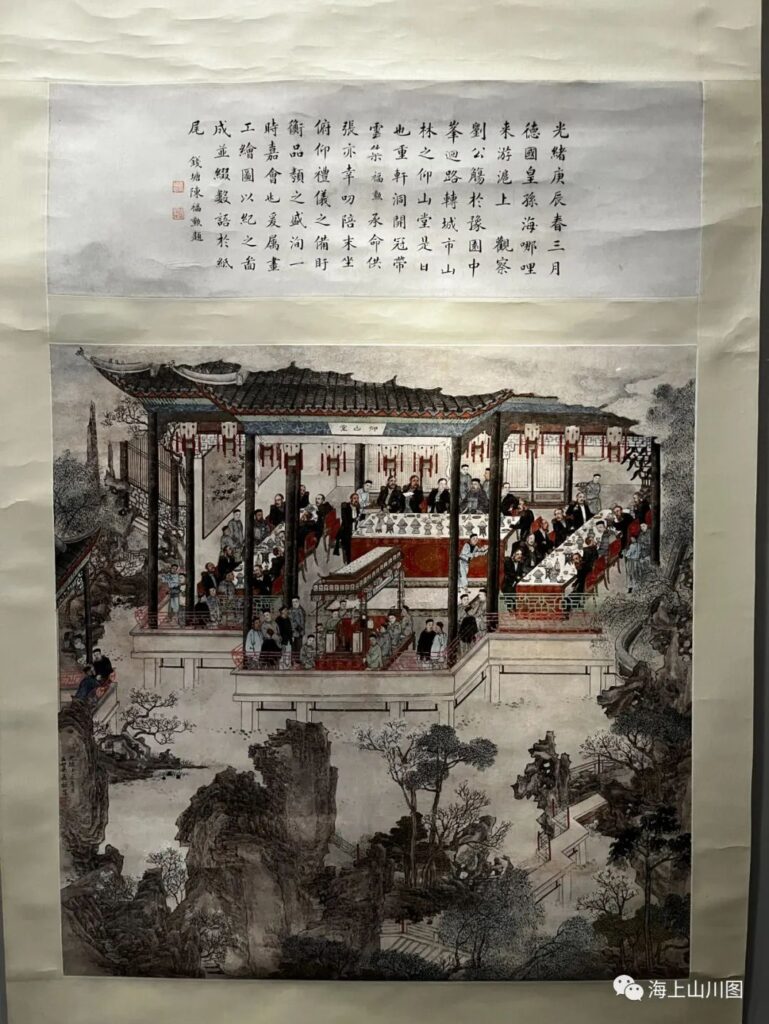 光緒庚辰春三月
德國皇孫海哪哩
来游滬上 觀察
劉公觴於豫園中
峯迴路轉城市山
林之仰山堂是日
也重軒洞開冠帶
雲集福勲承命供
張亦幸叨陪末坐
俯仰禮儀之備盱
衡品類之盛洵一
時嘉會也爰属畫
工繪圖以紀之啚
成並綴數語於紙
尾
錢塘陳福勲題
仰山堂
海上山川图